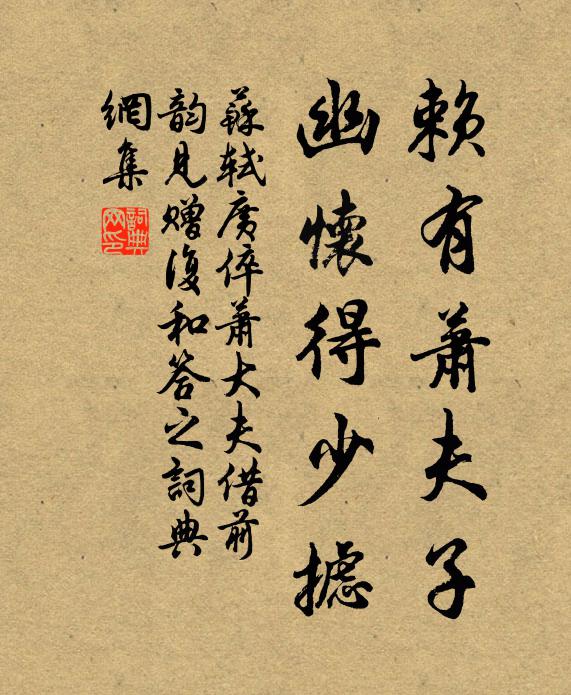 賴有蕭夫子
幽懷得少攄
蘇軾虔倅蕭大夫借前
韵見贈復和答之詞典
網集
詞典網印